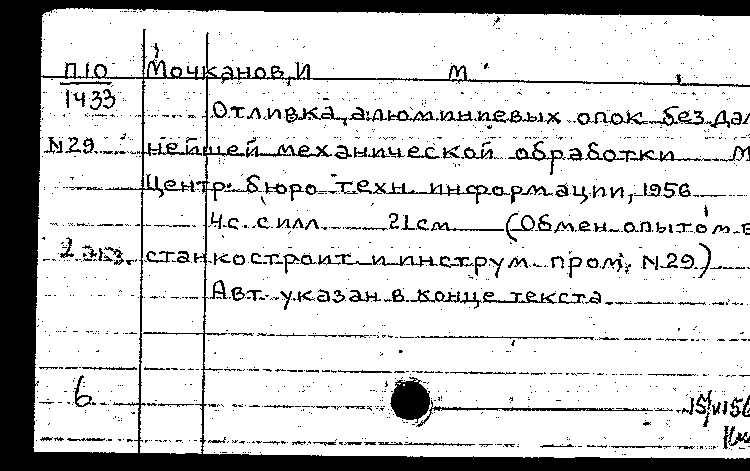 П10 Мочканов, И М
1433 Отливка алюминиевых опок без дал
N29 нейшей механической обработки М
Центр. бюро техн. информации, 1956
4с. с илл. 21см (Обмен опытом в
2 экз. станкостроит. и инструм. пром. N29)
Авт. указан в конце текста
6
15/VI56